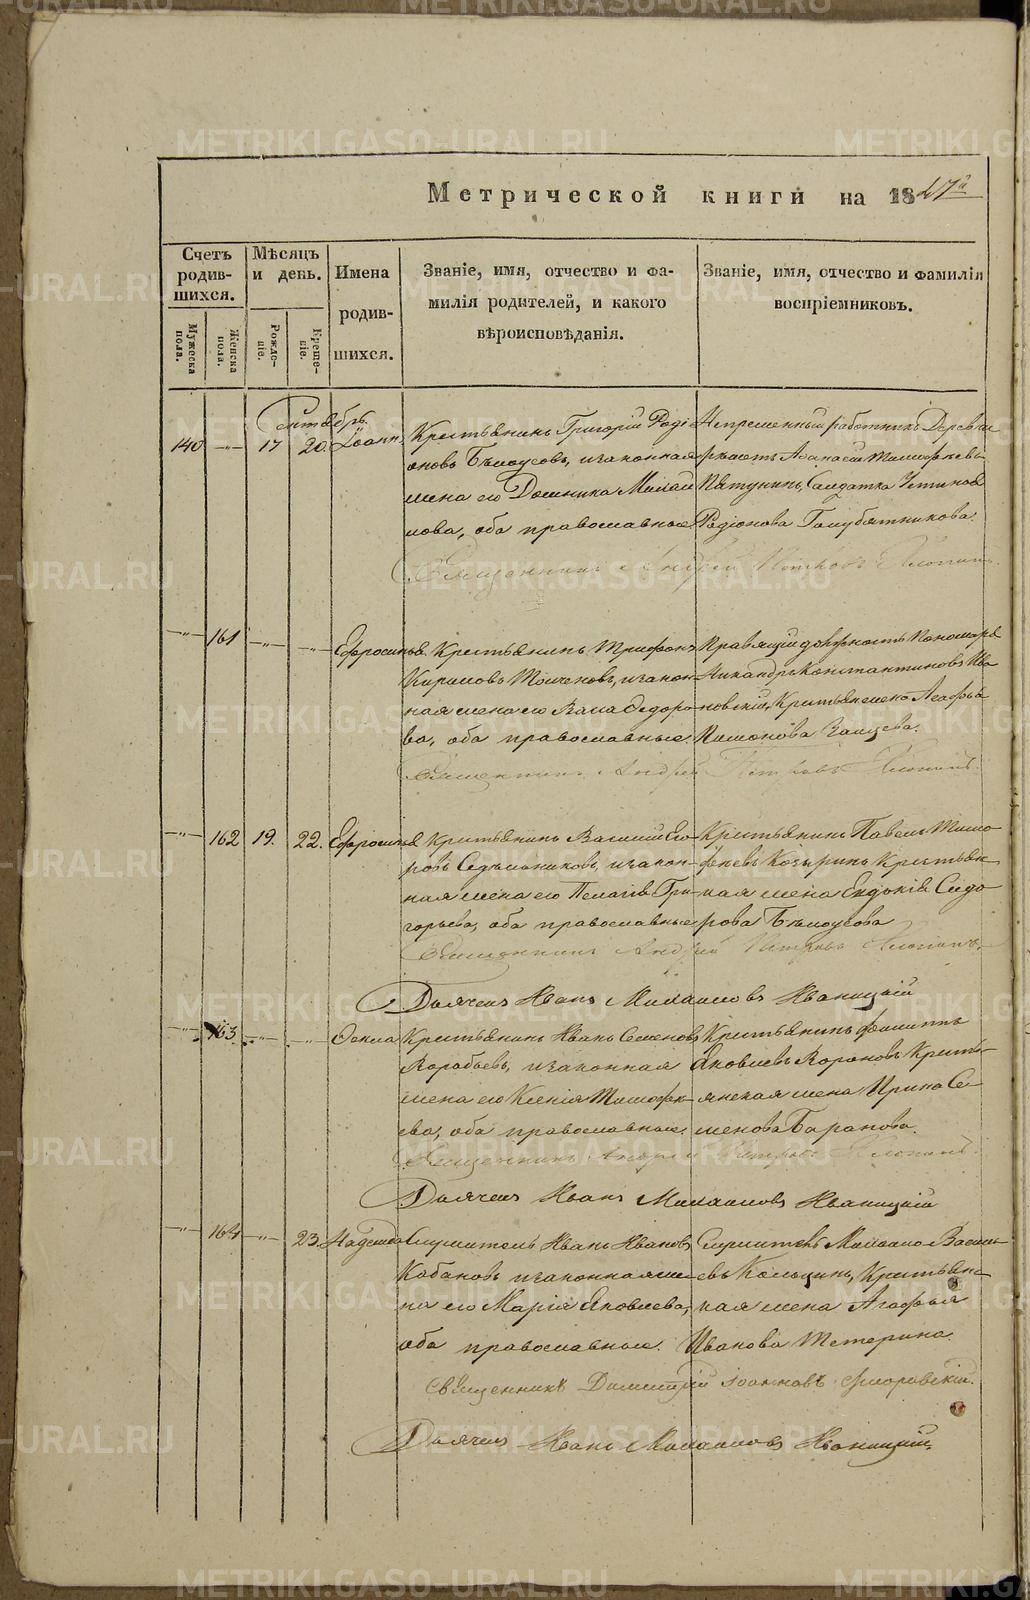 Метрической книги на 1847й
Счетъ родив-шихся.
Мѣсяцъ и день.
Имена родив-шихся.
Званіе, имя, отчество и фа-
милія родителей, и какого
вѣроисповѣданія.
Званіе, имя, отчество и фамилія
воспріемниковъ.
Мужеска пола.
Женска пола.
Рожде-ніе.
Креще-ніе.
Сентябрь
140 17 20 Іоаннъ
Крестьянинъ Григорій Роді
оновъ Бѣлоусовъ, и законная
жена его Домника Михаи
лова, оба православные
Непремѣнный работникъ Деревни
Аѳанасій Тимофѣевъ
Пятунинъ, Салдатка Устинья
Родіонова Голубятникова.
Священникъ Андрей Петровъ
161 Ефросинья
Крестьянинъ Трифонъ
Кириловъ Толченовъ, и закон-
ная жена его Ѳедоро-
ва, оба православные.
Правящій должность Пономаря
Никандръ Константиновъ Ива
новскій, Крестьян. жена Агафья
Пименова Заицева.
Священникъ Андрей Петровъ
162 19. 22. Ефросинья
Крестьянинъ Василій Его
ровъ Седѣльниковъ, и закон-
ная жена его Пелагія Гри-
горьева, оба православные
Крестьянинъ Павелъ Тимо
феевъ Козыринъ, Крестьян-
ская жена Евдокія Сидо
рова Бѣлоусова
Священникъ Андрей Петровъ
Дьячекъ Иванъ Михаиловъ Иваницкій
163 Ѳекла
Крестьянинъ Иванъ Семеновъ
Воробьевъ, и законная
жена его Ксенія Тимофе-
ева, оба православные.
Крестьянинъ Филиппъ
Яковлевъ Вороновъ, Кресть-
янская жена Ирина Се-
менова Баранова.
Священникъ Андрей Петровъ
Дьячекъ Иванъ Михаиловъ Иваницкій
164 23. Надежда
Служитель Иванъ Ивановъ
Кабановъ и законная же-
на его Марія Яковлева,
оба православные.
Служитель Михаило Василь
евъ Кольцинъ, Крестьян-
ская жена Агафья
Иванова Тетерина.
Священникъ Димитрій Іоанновъ
Дьячекъ Иванъ Михаиловъ Иваницкій.
METRIKI.GASO-URAL.RU